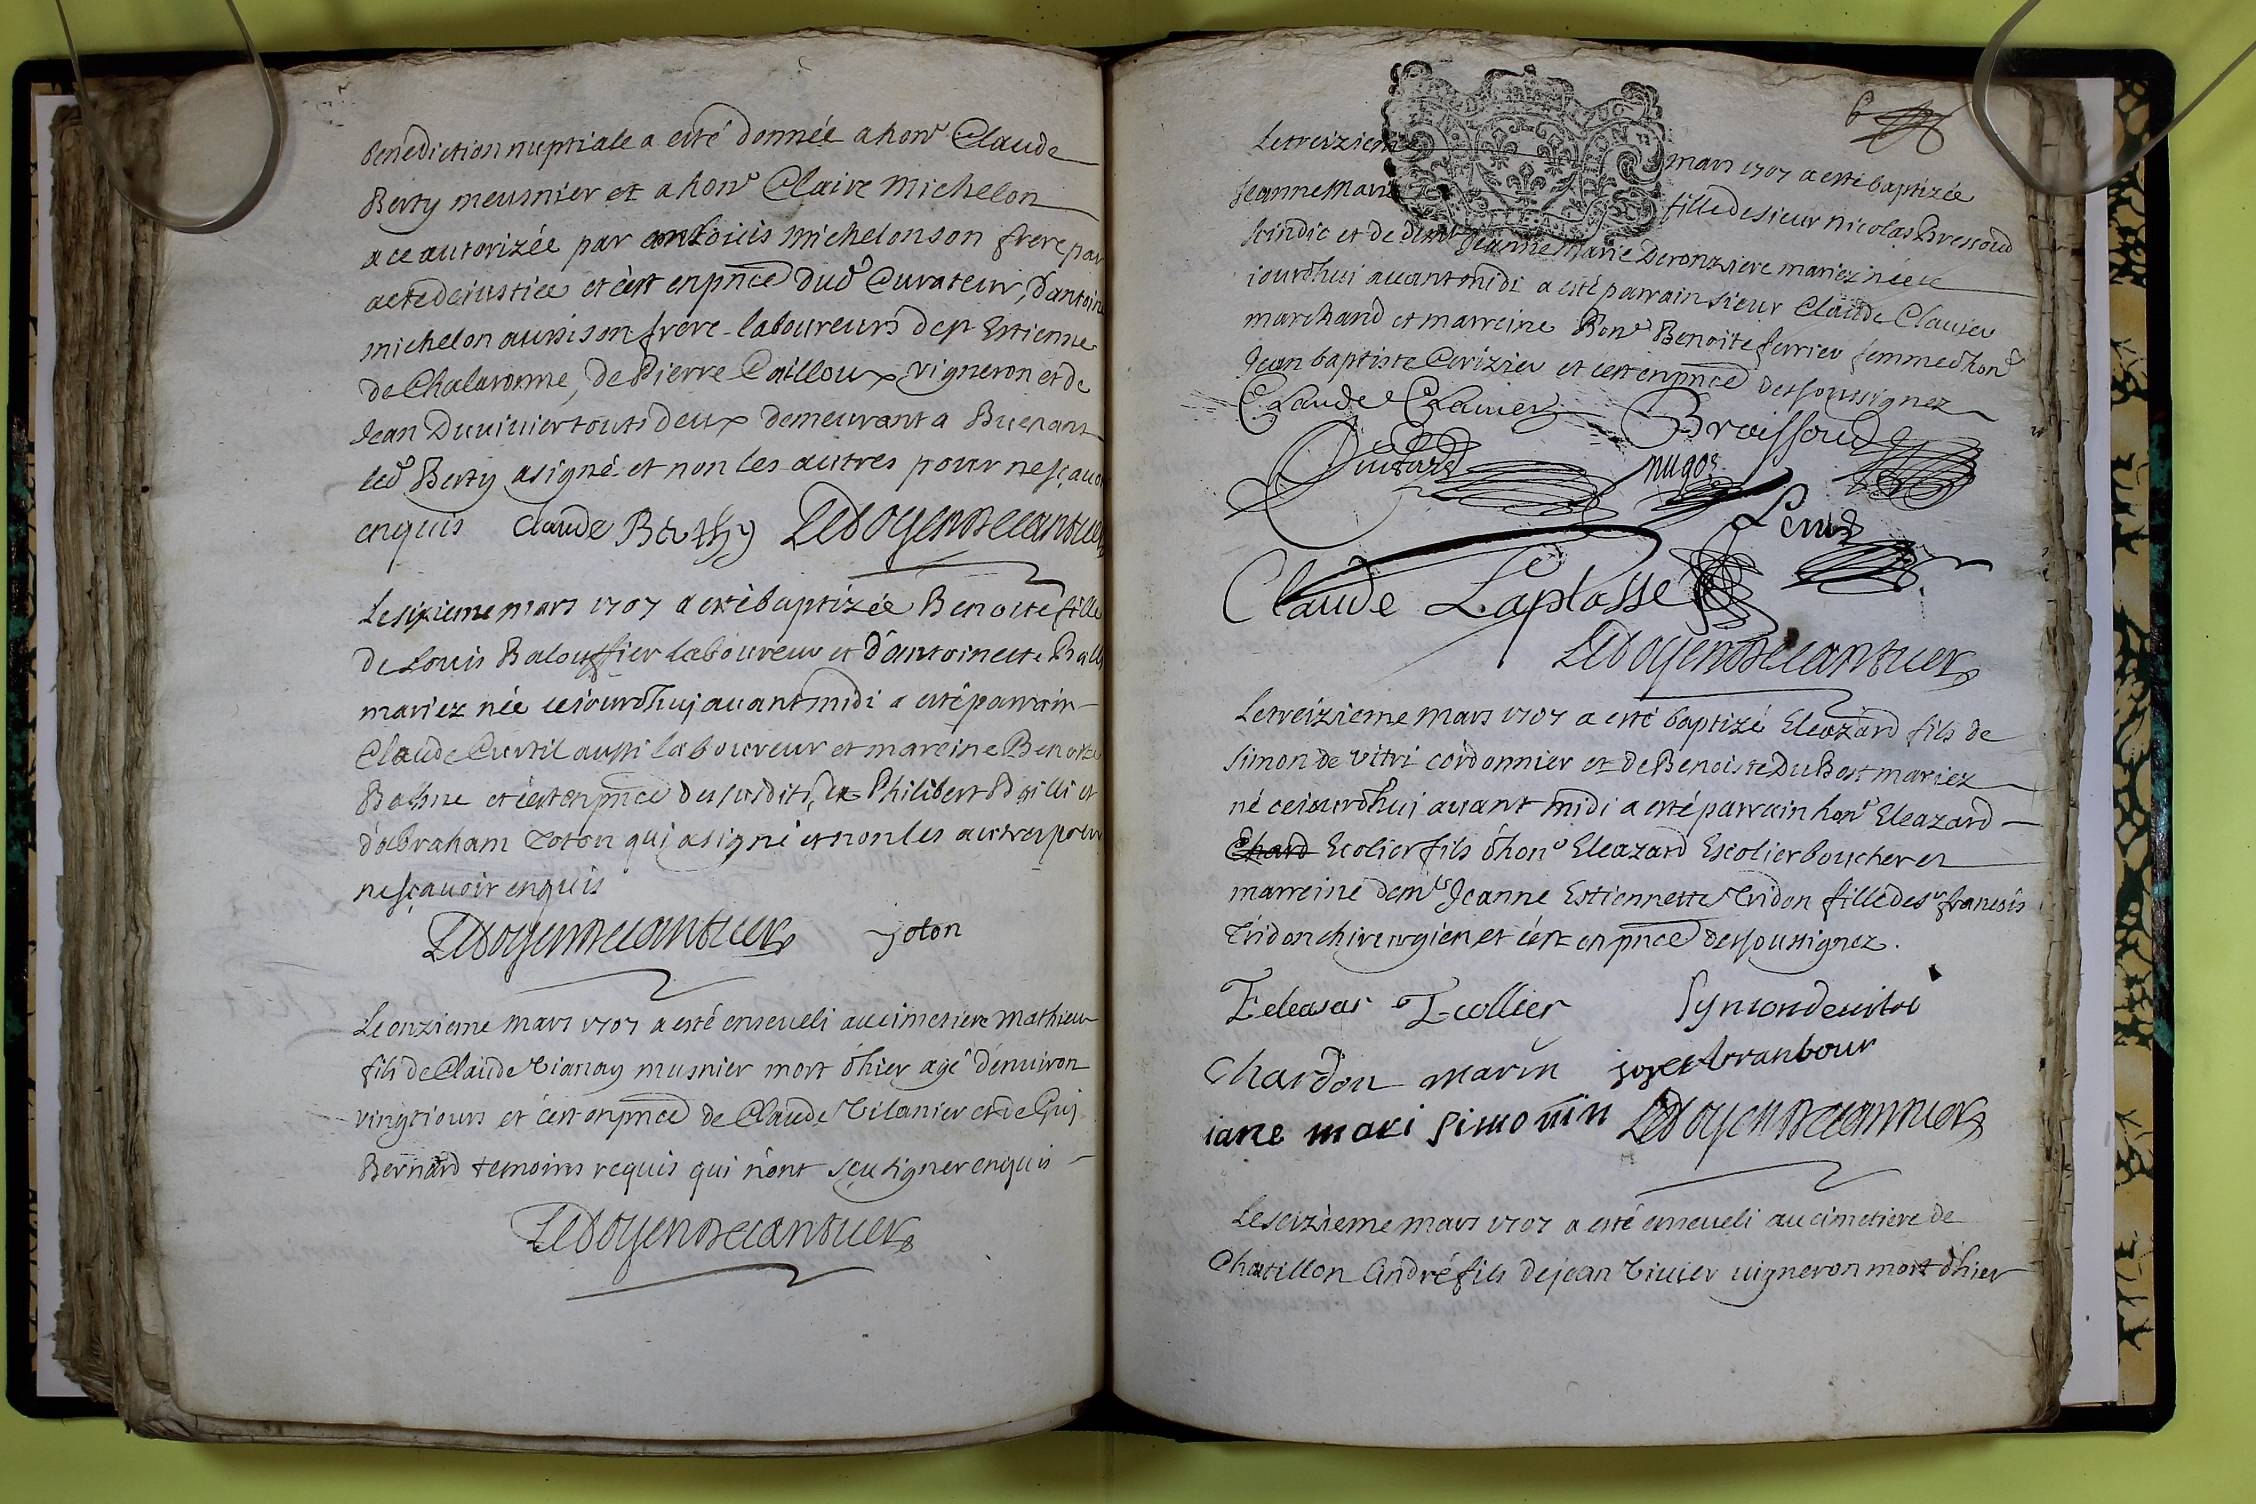 Benediction nuptiale a esté donnée a hone Claude
Berty meusnier et a hone Claire Michelon
a ce autorizée par Louis Michelon son frere par
acte de iustice et c'est en pnce dud Curateur, d'antoine
michelon aussi son frere laboureurs de st Estienne
de Chalaronne, de Pierre Cailloux vigneron et de
Jean Duvivier touts deux demeurant a Buenant
led Berty a signé et non les autres pour ne sçavoir
enquis Claude Berthy Ledoyen de cantuer
Le sixieme mars 1707 a esté baptizée Benoite fille
de Louis Balouffier laboureur et d'antoinette
mariez née ceiourdhuj avant midi a esté parrain
Claude Curtil aussi laboureur et mareine Benoite
et c'est en pnce des susdits, de Philibert Bailli et
d'abraham Joton qui a signé et non les autres pour
ne sçavoir enquis
Ledoyen de cantuer joton
Le onzieme mars 1707 a esté enseveli au cimetiere Mathieu
fils de Claude Vianay musnier mort d'hier agé d'environ
vingt iours et c'est en pnce de Claude Vilanier et de Guj
Bernard temoins requis qui n'ont sçu signer enquis
Ledoyen de cantuer
6
Le treizieme mars 1707 a esté baptizée
Jeanne Marie fille de sieur Nicolas Bressoud
scindic et de Jeanne Marie Deronziere mariez née ce
iourdhui avant midi a esté parrain sieur Claude Clavier
marchand et marreine hone Benoite ferrier femme d'hone
Jean baptiste Cerizier et c'est en pnce des soussignez
Claude Clavier Braissoud
nugos
Claude Laplasse
Ledoyen de cantuer
Le treizieme mars 1707 a esté baptizé Eleazard fils de
Simon de vitri cordonnier et de Benoiste Dubost mariez
né ceiourdhui avant midi a esté parrain hone Eleazard
Chard Ecolier fils d'hone Eleazard Escolier boucher et
marreine demlle Jeanne Estiennette Tridon fille de sr francois
Tridon chirurgien et c'est en pnce des soussignez.
Eeleasar Ecollier Symon devitri
chardon marin joset arranbour
iane mari simonin Ledoyen de cantuer
Le seizieme mars 1707 a esté enseveli au cimetiere de
Chatillon André fils de jean Vivier vigneron mort d'hier